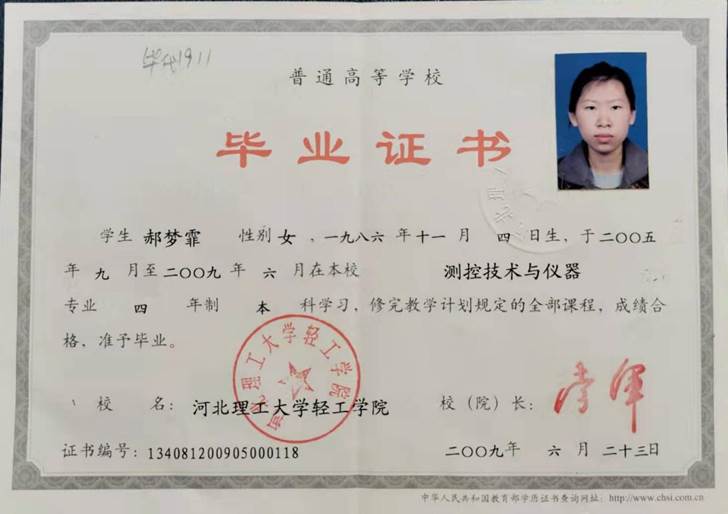 毕代1911
普通高等学校
毕业证书
学生 郝梦霏 性别 女 ，一九八六 年 十一 月 四 日生，于 二〇〇五
年 九 月至 二〇〇九 年 六 月在本校 测控技术与仪器
专业 四 年制 本 科学习，修完教学计划规定的全部课程，成绩合
格，准予毕业。
河北理工大学轻工学院
校 名： 河北理工大学轻工学院 校（院）长：
证书编号： 134081200905000118 二〇〇九年 六 月 二十三日
中华人民共和国教育部学历证书查询网址：http://www.chsi.com.cn